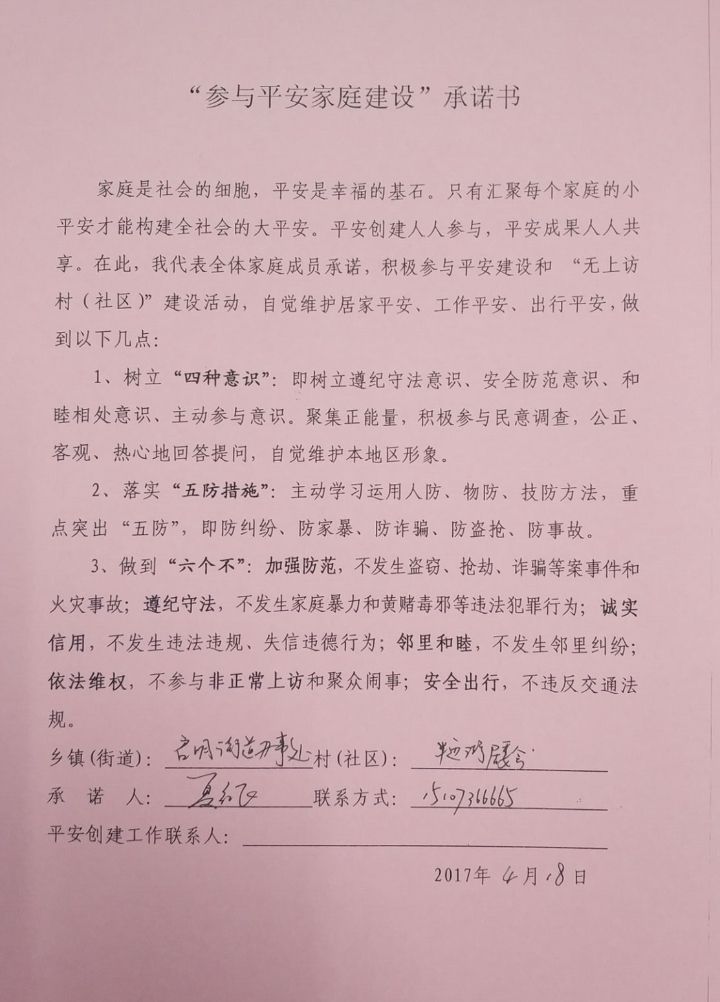 “参与平安家庭建设”承诺书
家庭是社会的细胞，平安是幸福的基石。只有汇聚每个家庭的小
平安才能构建全社会的大平安。平安创建人人参与，平安成果人人共
享。在此，我代表全体家庭成员承诺，积极参与平安建设和 “无上访
村（社区）”建设活动，自觉维护居家平安、工作平安、出行平安，做
到以下几点：
1、树立“四种意识”：即树立遵纪守法意识、安全防范意识、和
睦相处意识、主动参与意识。聚集正能量，积极参与民意调查，公正、
客观、热心地回答提问，自觉维护本地区形象。
2、落实“五防措施”：主动学习运用人防、物防、技防方法，重
点突出“五防”，即防纠纷、防家暴、防诈骗、防盗抢、防事故。
3、做到“六个不”：加强防范，不发生盗窃、抢劫、诈骗等案事件和
火灾事故；遵纪守法，不发生家庭暴力和黄赌毒邪等违法犯罪行为；诚实
信用，不发生违法违规、失信违德行为；邻里和睦，不发生邻里纠纷；
依法维权，不参与非正常上访和聚众闹事；安全出行，不违反交通法
规。
乡镇(街道)：启明街道办事处 村(社区)：
承 诺 人： 联系方式：15107366665
平安创建工作联系人：
2017年 4月18日